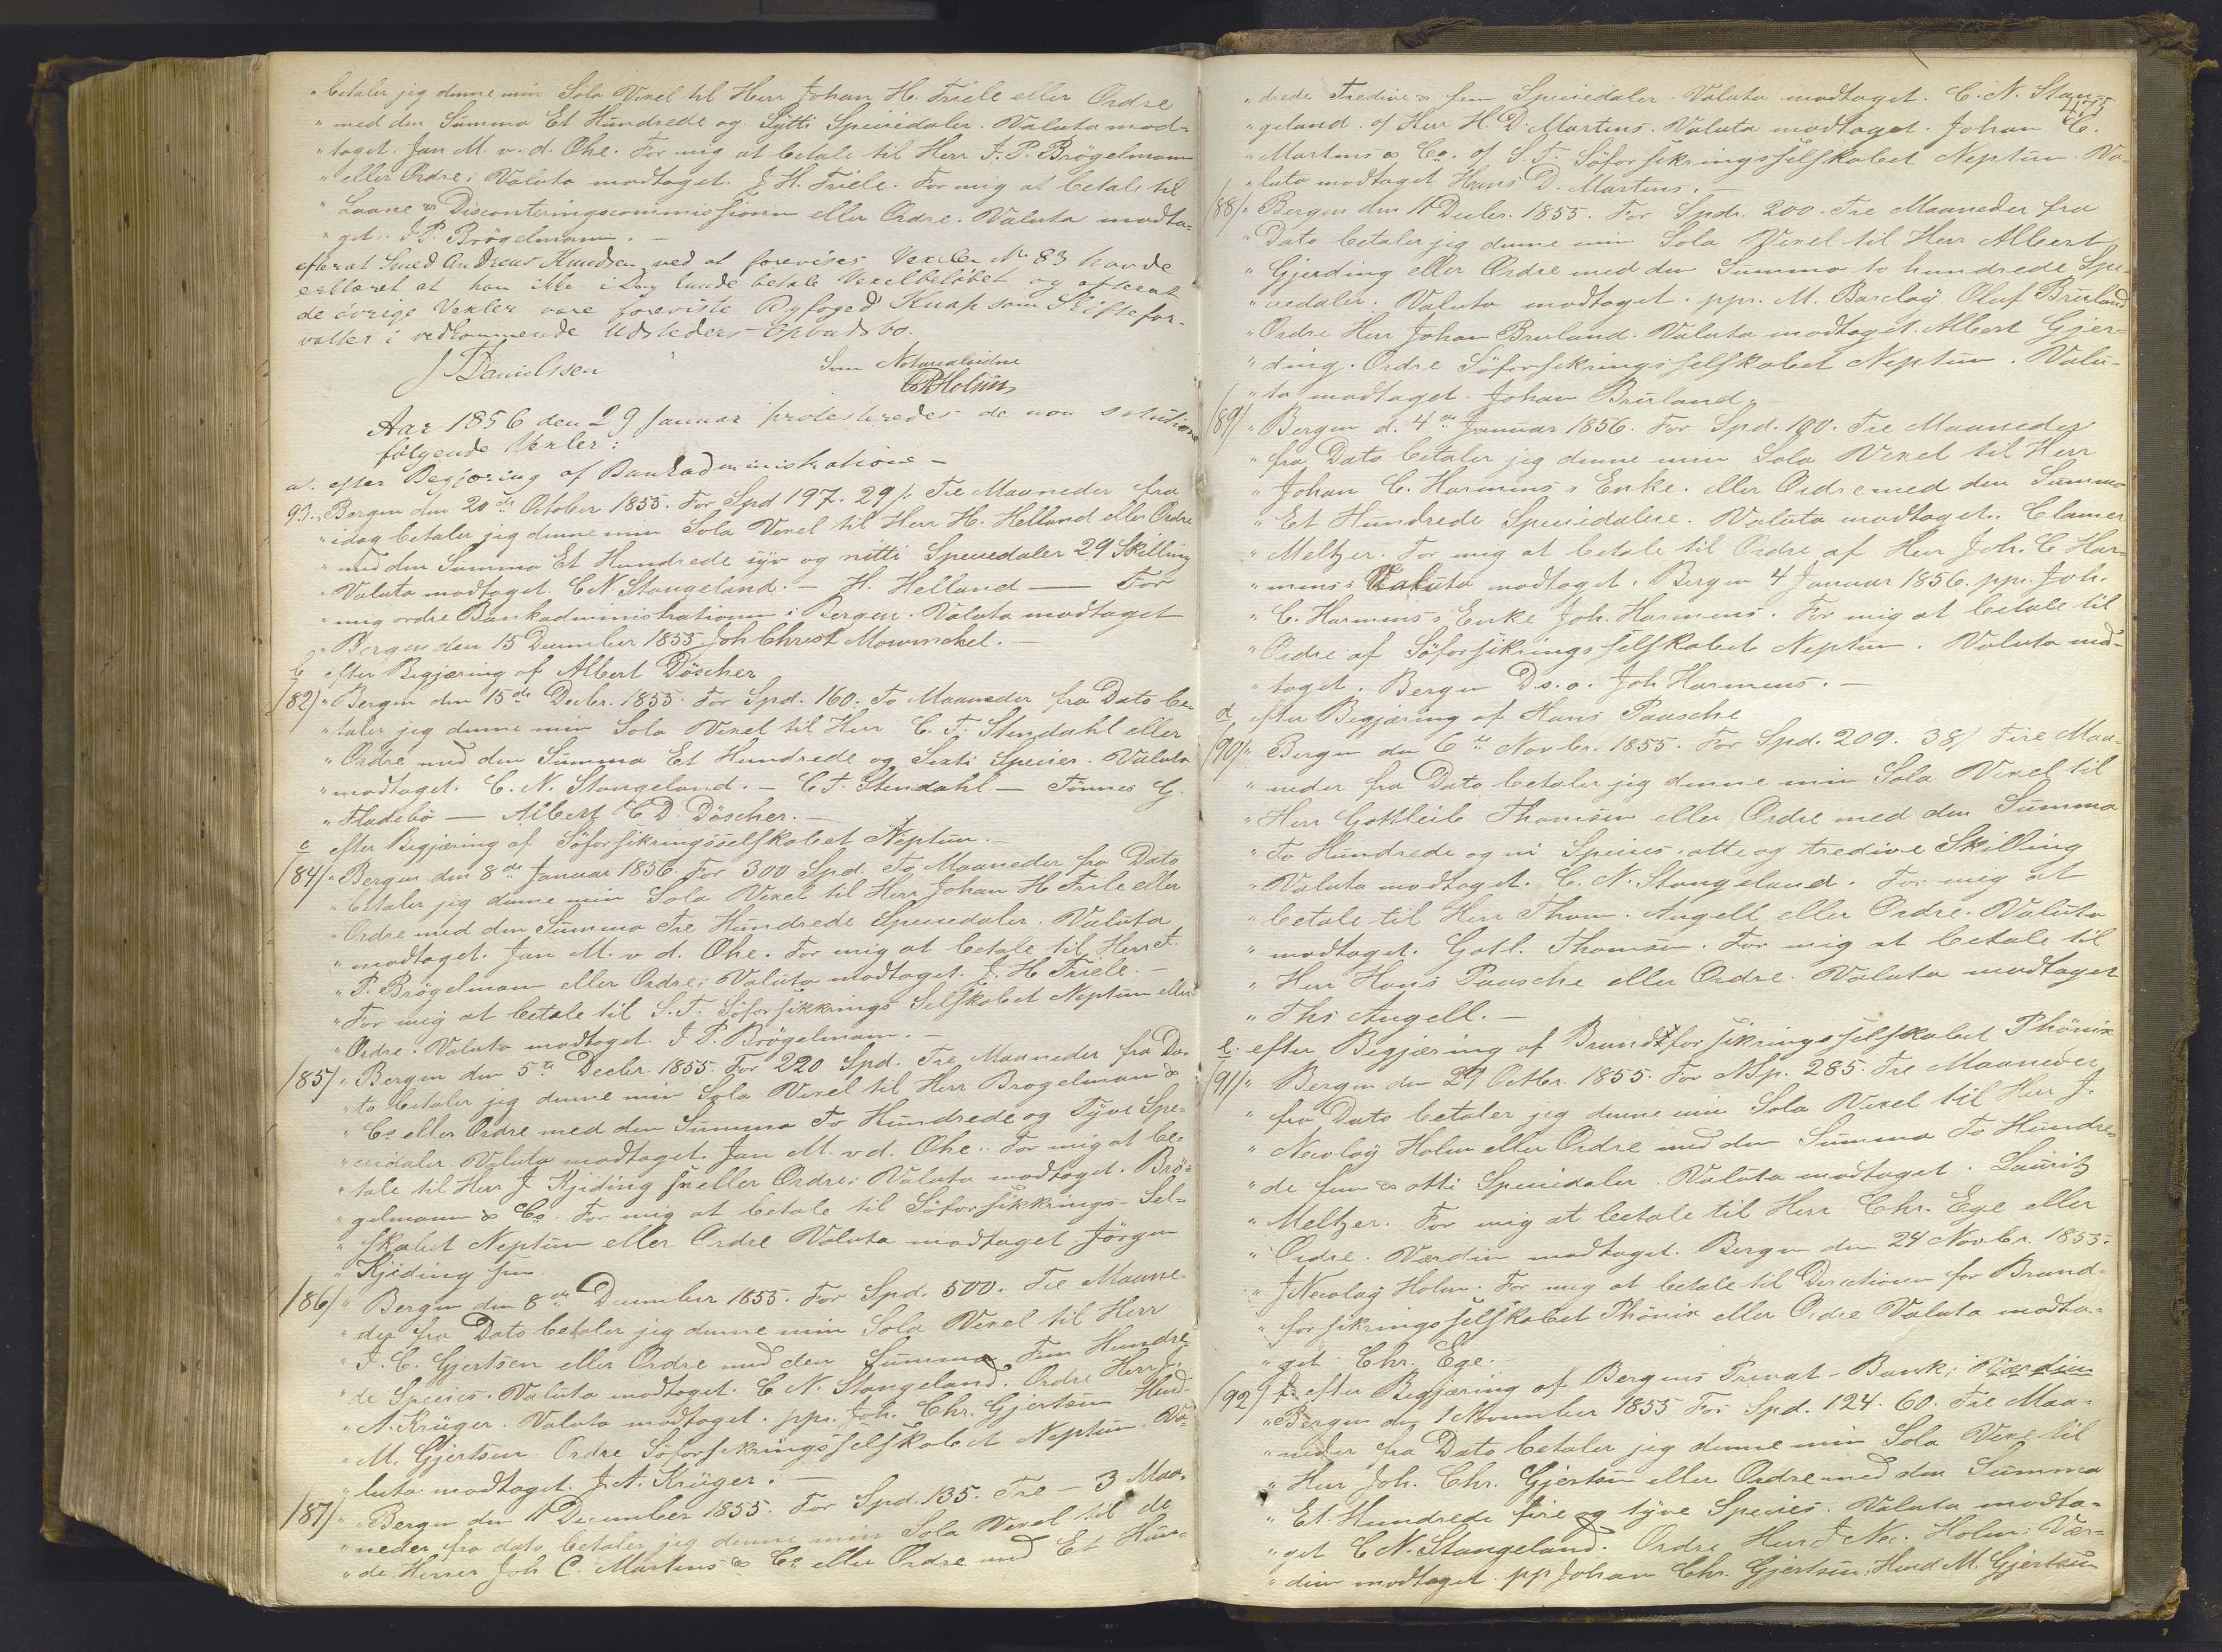 "betaler jeg denne min Sola Vexel til Herr Johan H. Friele eller Ordre
"med den Summa Et Hundrede og Sytti Speciedaler. Valuta mod=
"taget. Jan M. v. d. Ohe. For mig at betale til Herr J. P. Brögelmann
"eller Ordre; Valuta modtaget. J H. Friele. For mig at betale til
"Laane & Disconteringscommissionen eller Ordre. Valuta modta=
"get. J P. Brögelmann. –
efterat Smed Andreas Knudsen ved at forevises Vexelen No 83 havde
erklæret at han ikke i Dag kunde betale Vexelbelöbet og efterat
de övrige Vexler vare foreviste Byfoged Knap som Skiftefor-
valter i vedkommende Udsteders Opbudsbo.
J Danielssen Som Notarialvidne
Aar 1856 den 29 Januar protesteredes de non solutione
følgende Vexler:
a. efter Begjæring af Bankadministrationen –
93. "Bergen den 20de October 1855. For Spd 197. 29 /: Tre Maaneder fra
"idag betaler jeg denne min Sola Vexel til Herr H. Helland eller Ordre
"med den Summa Et Hundrede syv og nitti Speciedaler 29 Skilling
"Valuta modtaget. C. N. Stangeland. – H. Helland — For
"mig ordre Bankadministrationen i Bergen. Valuta modtaget
"Bergen den 15 December 1855 Joh Christ Mowinckel. –
b efter Begjæring af Albert Döscher
/82) "Bergen den 15de Decbr. 1855. For Spd. 160. To Maaneder fra Dato be-
"taler jeg denne min Sola Vexel til Herr C. F. Stendahl eller
"Ordre med den Summa Et Hundrede og Sexti Specier. Valuta
"modtaget. C. N. Stangeland. – C F. Stendahl – Tönnes G.
"Fladebö — Albert C D. Döscher. –
c efter Begjæring af Söforsikringsselskabet Neptun.
/84/ "Bergen den 8de Januar 1856. For 300 Spd. To Maaneder fra Dato
"betaler jeg denne min Sola Vexel til Herr Johan H Friele eller
"Ordre med den Summa Tre Hundrede Speciedaler. Valuta
"modtaget. Jan M. v d. Ohe. For mig at betale til Herr J.
"P. Brögelmann eller Ordre; Valuta modtaget. J. H Friele. –
"For mig at betale til S. T. Söforsikkrings Selskabet Neptun eller
"Ordre. Valuta modtaget. J P. Brögelmann. –
/85/ "Bergen den 5te Decbr. 1855. For 220 Spd. Tre Maaneder fra Da-
"to betaler jeg denne min Sola Vexel til Herr Brogelmann &
"Co eller Ordre med den Summa To Hundrede og Tyve Spe=
"ciedaler. Valuta modtaget. Jan M. v d. Ohe.. For mig at be=
"tale til Herr J Kjiding jun eller Ordre; Valuta modtaget. Brö=
"gelmann & Co. For mig at betale til Söforsikkrings-Sel=
"skabet Neptun eller Ordre Valuta modtaget Jörgen
"Kjiding jun.
/86/ "Bergen den 8de December 1855. For Spd. 500. Tre Maane-
"der fra Dato betaler jeg denne min Sola Vexel til Herr
"J. C. Gjertsen eller Ordre med den Summa Fem Hundre
"de Species. Valuta modtaget. C N. Stangeland. Ordre Herr J.
"A. Krüger. Valuta modtaget. ppr. Joh. Chr. Gjertsen Hend-
"M. Gjertsen. Ordre Söforsikringsselskabet Neptun Va=
"luta modtaget. J. A. Krüger. –
/87/ "Bergen den 11 December 1855. For Spd. 135. Tre – 3 Maa-
"neder fra dato betaler jeg denne min Sola Vexel til de
"de Herrer Joh C. Martens & Co eller Ordre med Et Hun=
475
"drede Tredive & fem Speciedaler. Valuta modtaget. C. N. Stan-
"geland. of Herr H. D. Martens. Valuta modtaget. Johan C.
"Martens & Co. of S. T. Söforsikringsselskabet Neptun. Va-
"luta modtaget Hans D. Martens. –
/88/ "Bergen den 11 Decbr. 1855. For Spdr. 200. Tre Maaneder fra
"Dato betaler jeg denne min Sola Vexel til Herr Albert
"Gjerding eller Ordre med den Summa to hundrede Spe-
"ciedaler. Valuta modtaget. ppr. M. Barclay Oluf Bruland
"Ordre Herr Johan Bruland. Valuta modtaget. Albert Gjer-
"ding. Ordre Söforsikringsselskabet Neptun. Valu-
"ta modtaget. Johan Bruland.
/89/ "Bergen d. 4de Januar 1856. For Spd. 100. Tre Maaneder
"fra Dato betaler jeg denne min Sola Vexel til Herr
"Johan C. Harmens's Enke. eller Ordre med den Summa
"Et Hundrede Speciedalere. Valuta modtaget. Clamer
"Meltzer. For mig at betale til Ordre af Herr Joh. C Har-
"mens's Valuta modtaget. Bergen 4 Januar 1856. ppr. Joh.
"C. Harmens's Enke Joh. Harmens. For mig at betale til
"Ordre af Söforsikringsselskabet Neptun. Valuta mod-
"taget. Bergen D.s. a. Joh Harmens. –
d efter Begjæring af Hans Paasche
/90/ "Bergen den 6te Novbr. 1855. For Spd. 209. 38/ Tre Maa-
"neder fra Dato betaler jeg denne min Sola Vexel til
"Herr Gottleib Thomsen eller Ordre med den Summa
"To Hundrede og ni Species, otte og tredive Skilling
"Valuta modtaget. C. N. Stangeland. For mig at
"betale til Herr Thom. Angell eller Ordre. Valuta
"modtaget. Gotl. Thomsen. For mig at betale til
"Herr Hans Paasche eller Ordre. Valuta modtaget
"Ths Angell. –
e. efter Begjæring af Brandforsikringsselskabet Phönix
/91/ "Bergen den 29 Octbr. 1855. For NSp. 285. Tre Maaneder
"fra Dato betaler jeg denne min Sola Vexel til Herr J.
"Nicolay Holm eller Ordre med den Summa To Hundre=
"de fem & otti Speciedaler. Valuta modtaget. Lauritz
"Meltzer. For mig at betale til Herr Chr. Ege eller
"Ordre. Værdien modtaget. Bergen den 24 Novbr. 1855.
"J Nicolay Holm. For mig at betale til Directionen for Brand-
"forsikringsselskabet Phönix eller Ordre Valuta modta=
"get Chr. Ege. –
/92) f. efter Begjæring af Bergens Privat-Bank; Værdien
"Bergen den 1 November 1855 For Spd. 124. 60. Tre Maa=
"neder fra Dato betaler jeg denne min Sola Vexel til
"Herr Joh. Chr. Gjertsen eller Ordre med den Summa
"Et Hundrede fire og tyve Species. Valuta modta=
"get C N. Stangeland. Ordre Herr J Nic. Holm; Vær=
"dien modtaget. pp Johan Chr. Gjertsen, Hend M. Gjertsen